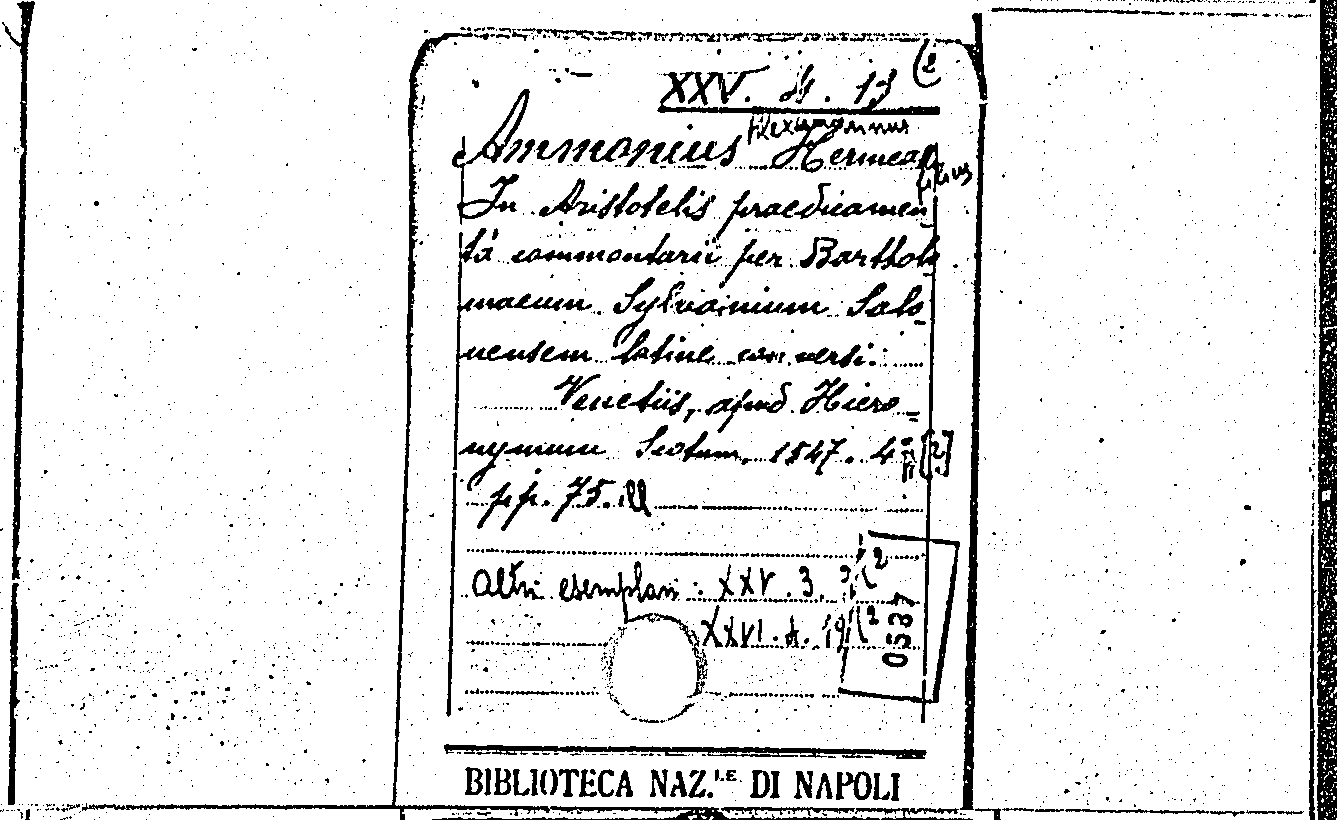 (2
XXV. 4. 13
Alexandrinus
Ammonius Hermeae
filius
In Aristotelis praedicamen
ta commentarii per Bartholo
maeum Sylvanium Salo=
nensem latine conversi.
Venetiis, apud Hiero=
nymum Scotum. 1547. 4° [2]
pp. 75. ill
Altri esemplari: XXV. 3. (2
XXVI. A. 19 (2
0537
BIBLIOTECA NAZ.LE DI NAPOLI